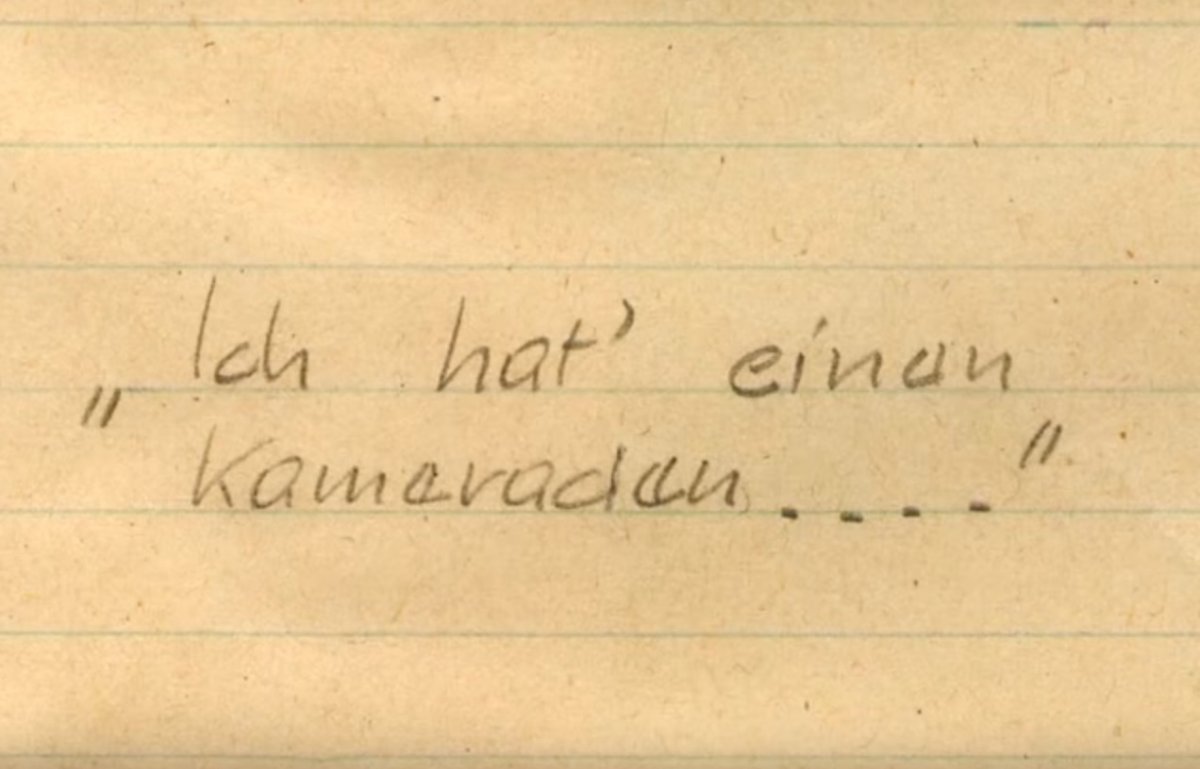 „Ich hat' einen
Kameraden...."